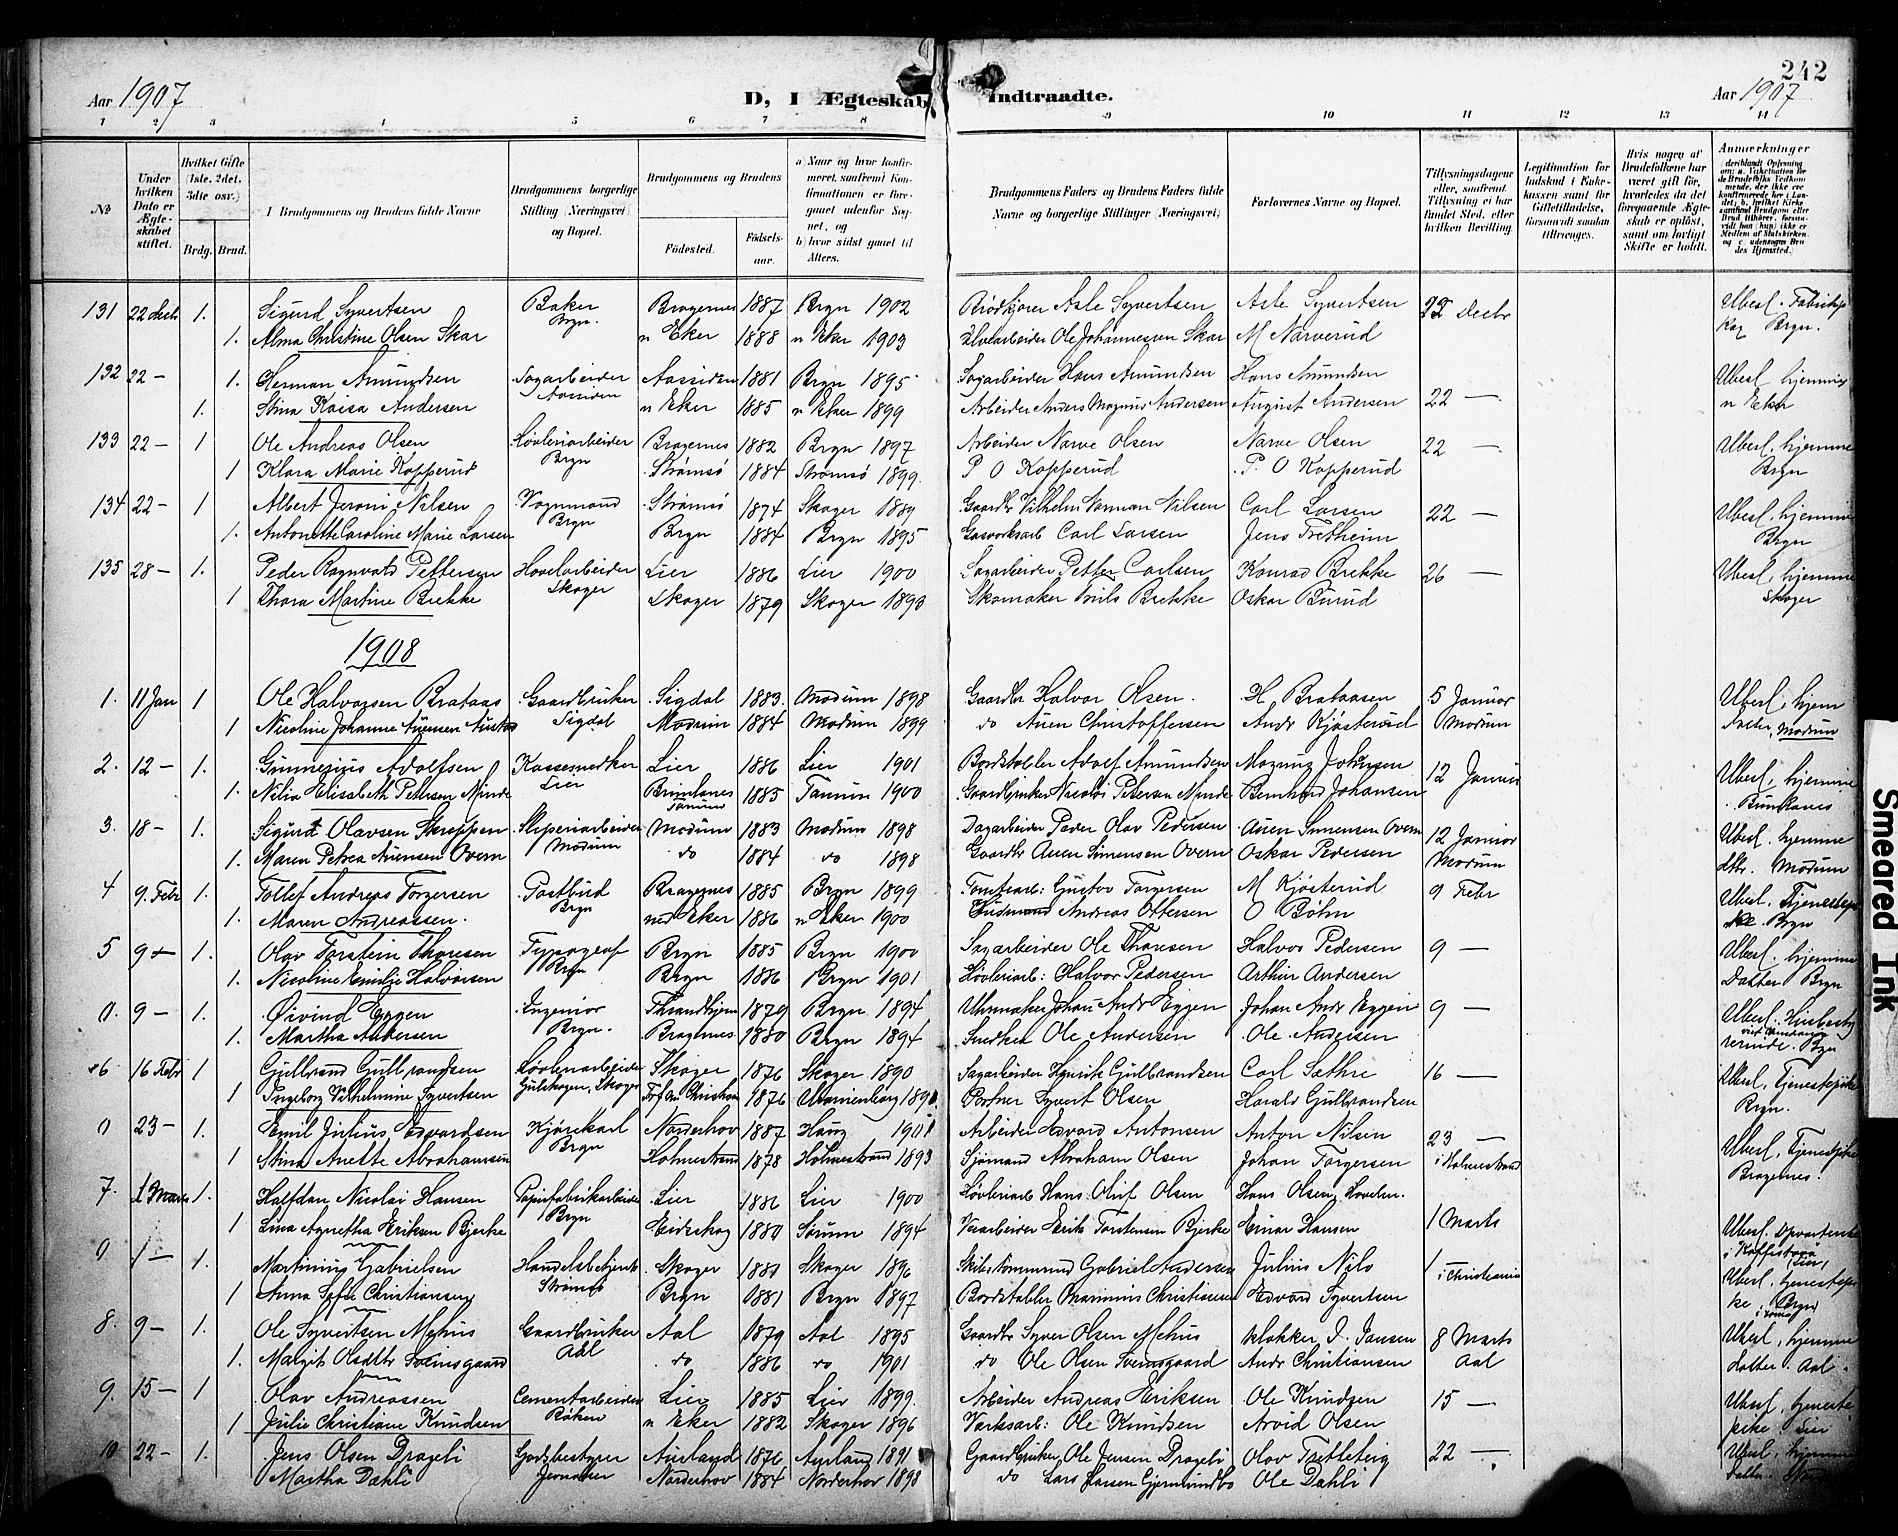 242
Aar 1907
D, I Ægteskab Indtraadte.
Aar 1907
1 2 3 4 5 6 7 8 9 10 11 12 13 14
No
Under hvilken Dato er Ægteskabet stiftet.
Hvilket Gifte (1ste, 2det, 3die osv.)
Brdg. Brud.
I Brudgommens og Brudens fulde Navne
Brudgommens borgerlige Stilling (Næringsvei) og Bopæl.
Brudgommens og Brudens
Fødested.
Fødselsaar.
a) Naar og hvor konfirmeret, samt om Konfirmationen er foregaaet udenfor Sognet, og
b) hvor sidst gaaet til Alters.
Brudgommens Faders og Brudens Faders fulde Navne og borgerlige Stillinger (Næringsvei)
Forlovernes Navne og Bopæl.
Tillysningsdagene eller, saafremt Tillysning ei har fundet Sted, efter hvilken Bevilling.
Legitimation for Indskud i Enkekassen samt for Giftetilladelse, forsaavidt saadan tiltrænges.
Hvis nogen af Brudefolkene har været gift før, hvorledes da det foregaaende Ægteskab er opløst, samt om lovligt Skifte er holdt.
Anmærkninger
131 22 Decb 1. Sigurd Syvertsen Baker Bragernes 1887 Bryn 1902 Brødkjører Asle Syvertsen Asle Syvertsen 22 Decbr Ubesl. Fabrikp
1. Alma Christine Olsen Skar Bryn. n Eker 1888 n Eker 1903 Elvearbeider Ole Johannessen Skar M Narverud Bryn.
132 22 – 1. Herman Amundsen Sagarbeider Aassiden 1881 Bryn 1895 Sagarbeider Hans Amundsen Hans Amundsen Ubesl hjemme
1. Stina Kaisa Andersen Aassiden n Eker 1885 n Eker 1899 Arbeider Anders Magnus Andersen August Andersen 22 – n Eker
133 22 – 1 Ole Andreas Olsen Høvleriarbeider Bragernes 1882 Bryn 1897 Arbeider Narve Olsen Narve Olsen 22 – Ubesl. hjemme
1 Klara Marie Kopperud Bryn Strømsø 1884 Strømsø 1899. P O Kopperud P. O Kopperud Bryn
134 22 – 1 Albert Jeroni Nilsen Vognmand Strømsø 1874 Skoger 1889 Gaardbr Vilhelm Norman Nilsen Carl Larsen 22 – Ubesl. hjemme
1. Antonette Caroline Marie Larsen Bryn Bryn 1884 Bryn 1895 Gasværksarb Carl Larsen Jens Tretheim Bryn
135 28 – 1. Peder Ragnvald Pettersen Høvelarbeider Lier 1886 Lier 1900 Sagarbeider Petter Carlsen Konrad Brekke 26 – Ubesl. hjemme
1 Thora Martine Brekke Skoger Skoger 1879 Skoger 1893 Skomaker Nils Brekke Oskar Burud Skoger
1908
1. 11 Jan 1 Ole Halvorsen Brataas Gaardbruker Sigdal 1883. Modum 1898 Gaardbr Halvor Olsen. H Brataasen 5 Januar Ubesl. hjem
1 Nicoline Johanne Auensen Sigdal Modum 1884 Modum 1899 do Auen Christoffersen Andr Kjøsterud Modum Datter, Modum
2. 12 – 1. Gunnerius Adolfsen Kassemerker Lier 1886 Lier 1901 Bordstabler Adolf Amundsen Magnus Johnsen 12 Januar Ubesl. hjemme
1. Nilia Elisabeth Pettersen Minde Lier Bundanes Tanum 1885 Tanum 1900 Gaardbruker Nicolai Petersen Minde Bernhard Johansen
3. 18 – 1. Sigurd Olavsen Skroppen Sliperiarbeider Modum 1883 Modum 1898 Dagarbeider Peder Olav Pedersen Auen Simensen Overn 12 Januar Ubesl. hjemme
1. Maren Petrea Auensen Overn Modum do 1884 do 1898 Gaardbr Auen Simensen Overn Oskar Pedersen Modum dtr. Modum
4 9. Febr 1. Tollef Andreas Torgersen Postbud Bragernes 1885 Bryn 1899 Tomtearb: Gustav Torgersen M Kjøsterud 9 Febr Ubesl. Tjenestep
1. Maren Andreassen. Bryn ned Eker 1886 n Eker 1900 Husmand Andreas Ottersen O Bøhn ke. Bryn
5 9 – 1. Olav Torstein Thoresen Typograf Bryn 1885 Bryn 1900 Sagarbeider Ole Thoresen Halvor Pedersen 9 – Ubesl. hjemme
1. Nicoline Emilie Halvorsen Bryn Bryn 1886 Bryn 1901 Høvleriarb: Halvor Pedersen Arthur Andersen Datter Bryn
0. 9 – 1. Øivind Eggen Ingeniør Thrandhjem 1879 Bryn 1894 Uhrmaker Johan Andr Eggen Johan Andr Eggen 9 – Ubesl. Husbesty
1. Martha Andersen Bryn. Bragernes 1880 Bryn 1894 Snedker Ole Andersen Ole Andersen rerinde. Bryn
6 16 Febr 1 Gulbrand Gulbrandsen Høvleriarbeider Skoger 1876 Skoger 1890 Sagarbeider Henrik Gulbrandsen Carl Sæthre 16 – Ubesl. Tjenestepike
1 Ingeborg Vilhelmine Syvertsen Gulskogen, Skoger 1876 Portner Syvert Olsen Harald Gulbrandsen Bryn.
0 23 – 1. Emil Julius Edvardsen Kjørekarl Norderhov 1887 Haug 1901 Arbeider Edvard Antonsen Anton Nilsen 23 – Ubesl. Tjenestpike
1 Stina Anette Abrahamsen Bryn Holmestrand 1878 Holmestrand 1893 Sjømand Abraham Olsen Johan Torgersen i Holmestrand Bragernes.
7. 1 Marts 1. Halfdan Nicolai Hansen Papirfabrikarbeider Lier 1886 Lier 1900 Høvleriarb Hans Oluf Olsen Hans Olsen, Hovelen.
1 Lina Agnetha Eriksen Bjerke Bryn Eidskog 1880 Sørum 1894 Veiarbeider Erik Torstensen Bjerke Einar Hansen 1 Marts Ubesl. Opvarterske
0 1 – 1. Martinius Gabrielsen Handelsbetjent Skoger 1881 Skoger 1896 Skibstømmermand Gabriel Andersen Julius Nilo 1 – i Kaffistova
1 Anna Sofie Christiansen Strømsø Bryn 1881 Bryn 1897 Bordstabler Marinius Christiansen Edvard Syvertsen i Christiania Ubesl. tjenestepi
8. 9 – 1. Ole Syvertsen Mehus Gaardbruker Aal 1879 Aal 1895 Gaardbr Syver Olsen Mehus Klokker J. Jansen 8 Marts Ubesl. hjemme
1. Malgit Olsdtr Sveinsgaard Aal do 1886 do 1901 do Ole Olsen Sveinsgaard Andr Christiansen Aal Datter. Aal.
9. 15 – 1 Olav Andreassen Cementarbeider Lier 1885 Lier 1899. Arbeider Andreas Eriksen Ole Knudsen 15 – Ubesl. tjeneste
1 Julie Christiane Knudsen Røken n Eker 1882 Skoger 1896 Verksarb: Ole Knudsen Arvid Olsen pike Lier
10 22 – 1. Jens Olsen Drageli Godsbestyrer Aurland 1876 Aurland 1891 Gaardbruker Ole Jensen Drageli Olav Tretteteig 22 – Ubesl. hjemme
Martha Dæhli Jevnaker Norderhov 1884 Norderhov 1898 do Lars Larsen Gjermundbo Ole Dæhli
Smeared Ink